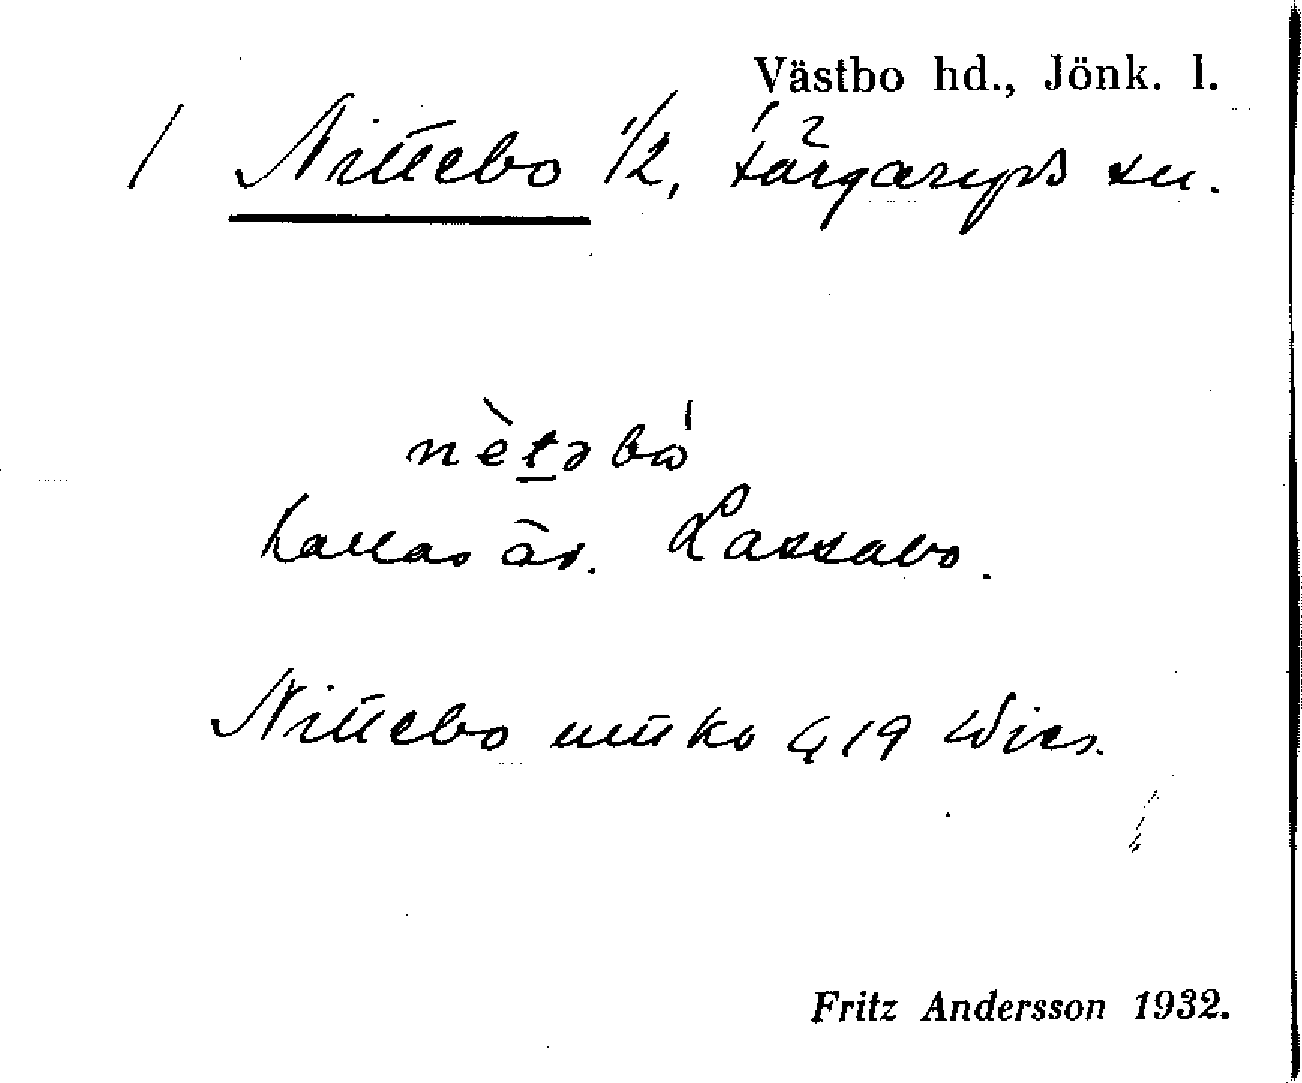 Västbo hd., Jönk. l.
/ Nittebo 1/2, Färgaryds sn.
nètəbó
kallas äv. Lassabo.
Nittebo
Fritz Andersson 1932.